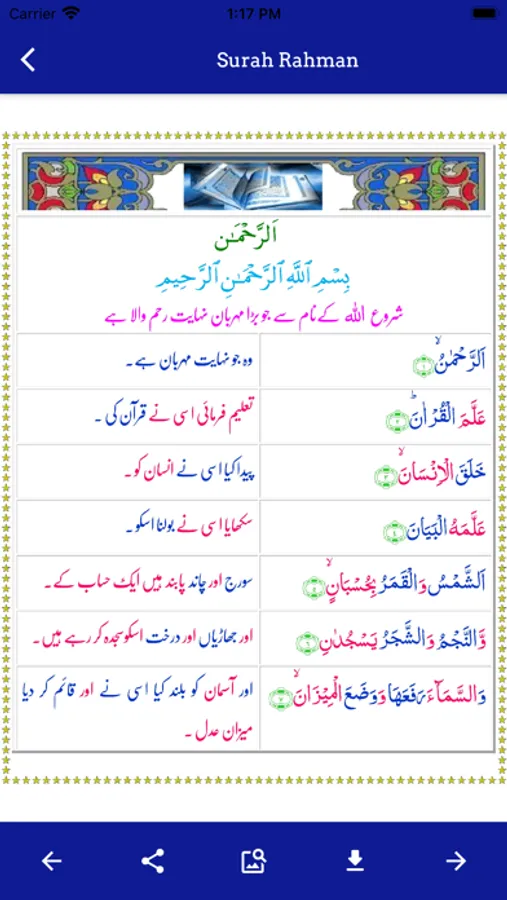 Carrier 1:17 PM
Surah Rahman
اَلرَّحْمٰن
بِسْمِ ٱللَّهِ ٱلرَّحْمَـٰنِ ٱلرَّحِيمِ
شروع الله کے نام سے جو بڑا مہربان نہایت رحم والا ہے
اَلرَّحْمٰنُۙ ﴿۱﴾ وہ جو نہایت مہربان ہے۔
عَلَّمَ الْقُرْاٰنَؕ ﴿۲﴾ تعلیم فرمائی اسی نے قرآن کی ۔
خَلَقَ الْاِنْسَانَۙ ﴿۳﴾ پیدا کیا اسی نے انسان کو۔
عَلَّمَهُ الْبَیَانَ ﴿۴﴾ سکھایا اسی نے بولنا اسکو ۔
اَلشَّمْسُ وَالْقَمَرُ بِحُسْبَانٍۙ ﴿۵﴾ سورج اور چاند پابند ہیں ایک حساب کے۔
وَّالنَّجْمُ وَالشَّجَرُ یَسْجُدٰنِ ﴿۶﴾ اور جھاڑیاں اور درخت اسکو سجدہ کر رہے ہیں۔
وَالسَّمَآءَ رَفَعَهَا وَوَضَعَ الْمِیْزَانَۙ ﴿۷﴾ اور آسمان کو بلند کیا اسی نے اور قائم کر دیا
میزان عدل ۔